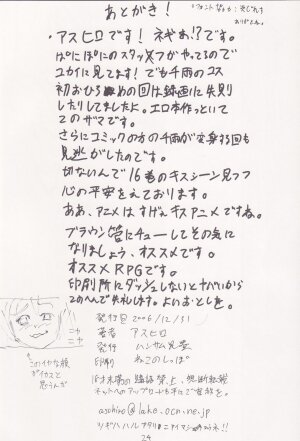 あとがき!
アスヒロです! ネギま!?です。
ぱにぽにのスタッフがやってるので
ユカイに見てます! でも千雨のコス
初おひろめの回は録画に失敗
したりしてましたよ。エロ本作っといて
このザマです。
さらにコミックの方の千雨が変身する回も
見逃がしたのです。
切ないんで16巻のキスシーン見つつ
心の平安をえております。
ああ、アニメはすげーキスアニメですね。
ブラウン管にチューしてその気に
なりましょう、オススメです。
オススメRPGです。
印刷所にダッシュしないとヤバいから
このへんで失礼します。よいおとしを。
発行日 2006/12/31
著者 アスヒロ
発行 ハンサム兄弟
印刷 ねこのしっぽ
このイヤな顔
がイカスと
思うんだ
ニヤ
ニヤ
asohiro@lake.ocn.ne.jp
24